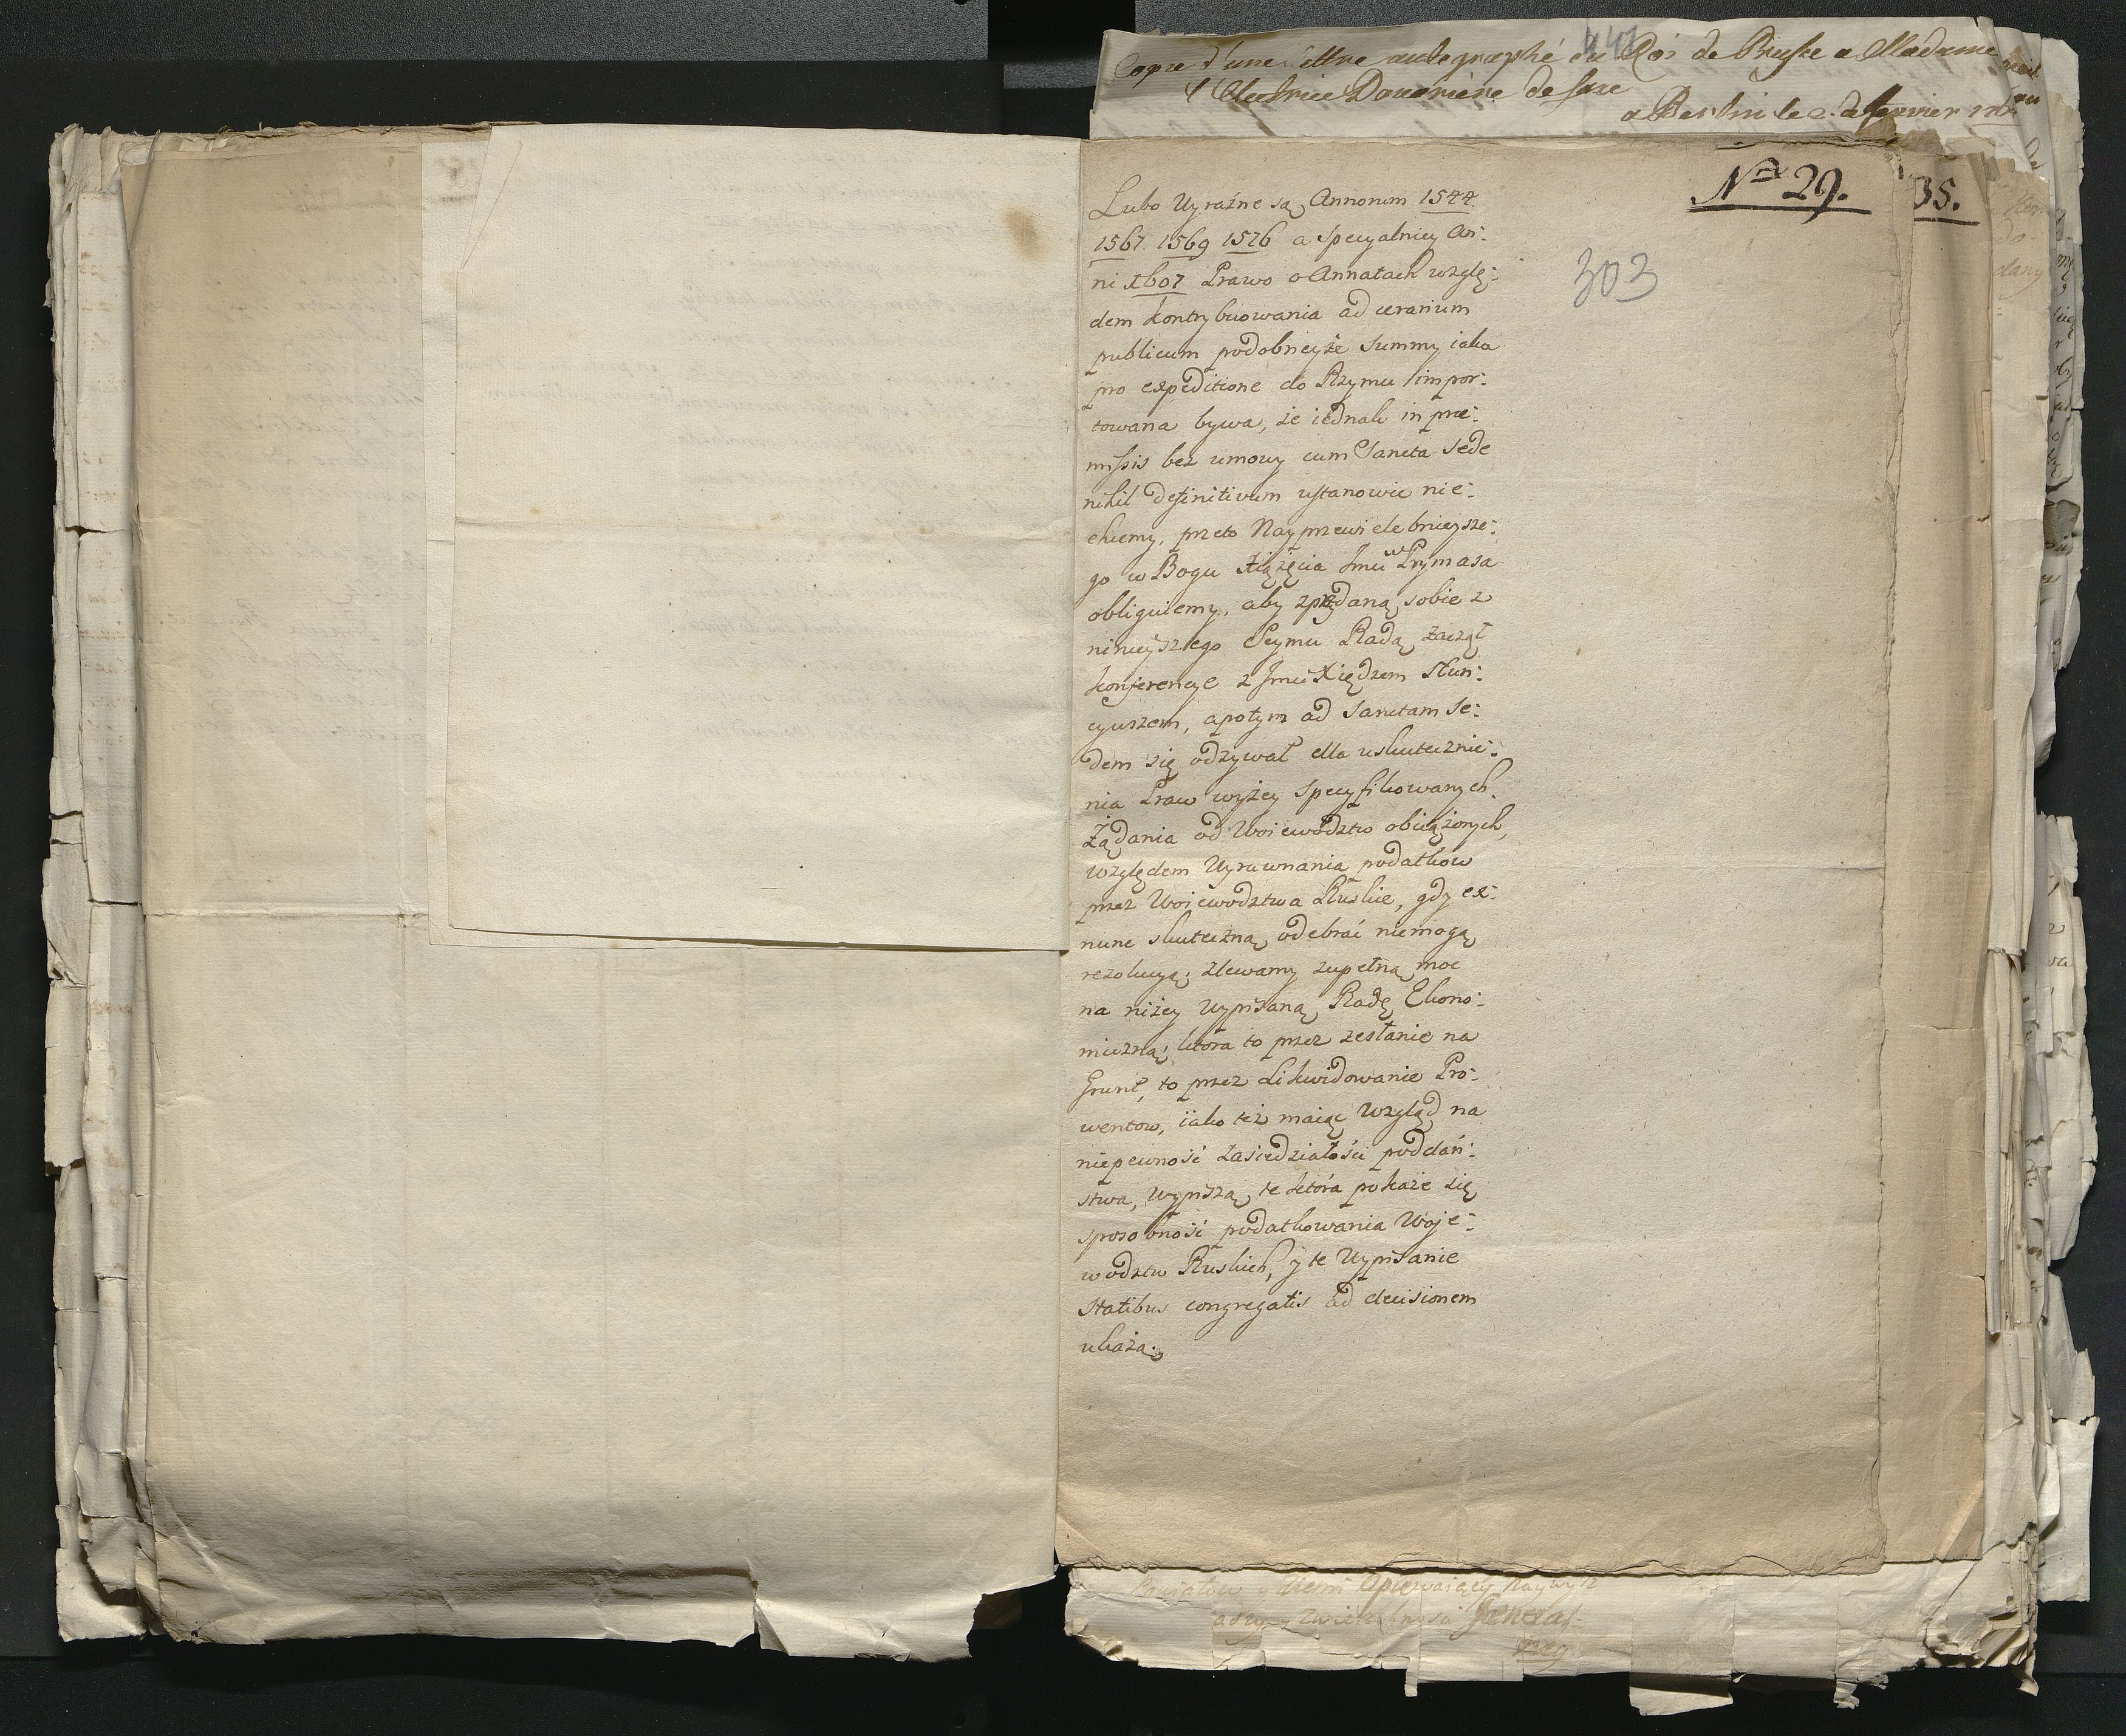 Copie d'une lettre autographé du Roi de Prusse a Madame
l'Electrice Douariere de Saxe
a Berlin le 2. de fevrier
441
Nro 29.
35.
303
Lubo Wyraźne są Annorum 1544.
1567. 1569 1576 a specyalniey An:
ni 1607 Prawo o Annatach wzglę:
dem kontrybuowania ad ærarium
publicum podobneyże Summy iaka
pro expeditione do Rzymu impor:
towana bywa, że iednak in præ:
missis bez umowy cum Sancta Sede
nihil definitivum ustanowic nie:
chcemy, przeto Nayprzewielebnieysze:
go w Bogu Xiążęcia Jmci Prymasa
obliguiemy, aby z przydaną sobie z
ninieyszego Seymu Radą zaczął
konferencye z Jmci Xiędzem Nun:
cyuszem, apotym ad Sanctam Se:
dem się odzywał dla uskutecznie:
nia Praw wyżey specyfikowanych.
Żądania od Woiewodztw obciążonych,
względem Wyrawnania podatkow
przez Woiewodztwa Ruskie, gdy ex:
nunc skuteczną odebrać niemogą
rezolucyą; zlewamy zupełną moc
na niżey wypisaną Radę Ekono:
miczną; ktora to przez zesłanie na
Grunt, to przez Likwidowanie Pro:
wentow, iako też maiąc wzgląd na
niepewność zasiedziałości poddań:
stwa, wypiszą te ktora pokaże się
sposobność podatkowania Woje:
wodztw Ruskich, y te Wypisanie
Statibus congregatis ad decisionem
ukażą.